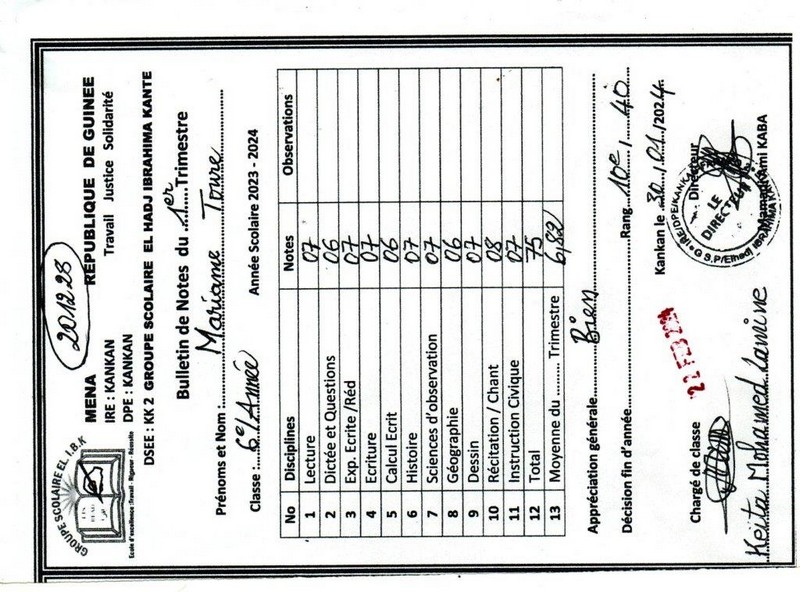 GROUPE SCOLAIRE EL I.B.K
Ecole d'excellence :Travail - Rigueur - Réussite
201228
MENA RÉPUBLIQUE DE GUINEE
IRE : KANKAN Travail Justice Solidarité
DPE : KANKAN
DSEE : KK 2 GROUPE SCOLAIRE EL HADJ IBRAHIMA KANTE
Bulletin de Notes du 1er Trimestre
Prénoms et Nom : Mariame Toure
Classe : 6e/Année Année Scolaire 2023 - 2024
No Disciplines Notes Observations
1 Lecture 07
2 Dictée et Questions 06
3 Exp. Ecrite /Réd 07
4 Ecriture 07
5 Calcul Ecrit 06
6 Histoire 07
7 Sciences d'observation 07
8 Géographie 06
9 Dessin 07
10 Récitation / Chant 08
11 Instruction Civique 07
12 Total 75
13 Moyenne du ......... Trimestre 6,82
Appréciation générale Bien
Décision fin d'année Rang 10e / 40
Kankan le 30/01/2024
22 FEB 2024
Chargé de classe Directeur
LE DIRECTEUR
Keita Mohamed Lamine Mamadi KABA